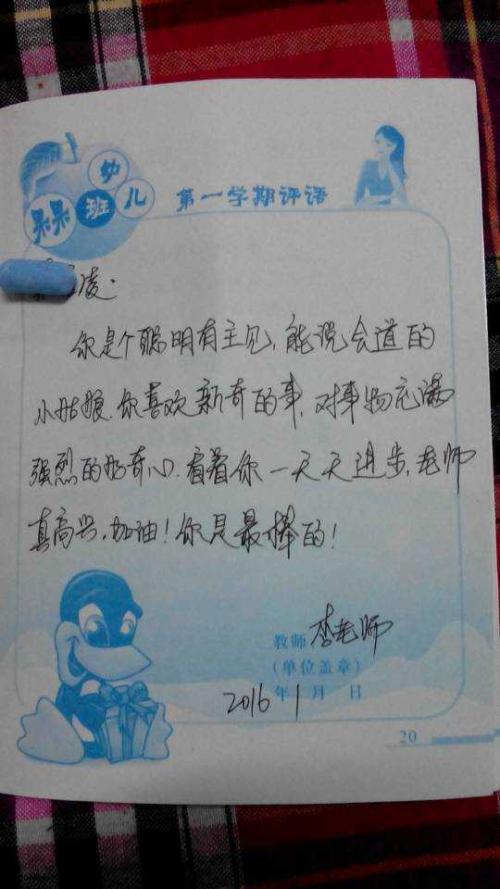 呆呆班
幼儿
第一学期评语
凌:
你是个聪明有主见,能说会道的
小姑娘.你喜欢新奇的事,对事物充满
强烈的好奇心.看着你一天天进步,老师
真高兴,加油!你是最棒的!
教师 李老师
(单位盖章)
2016年1月 日
20